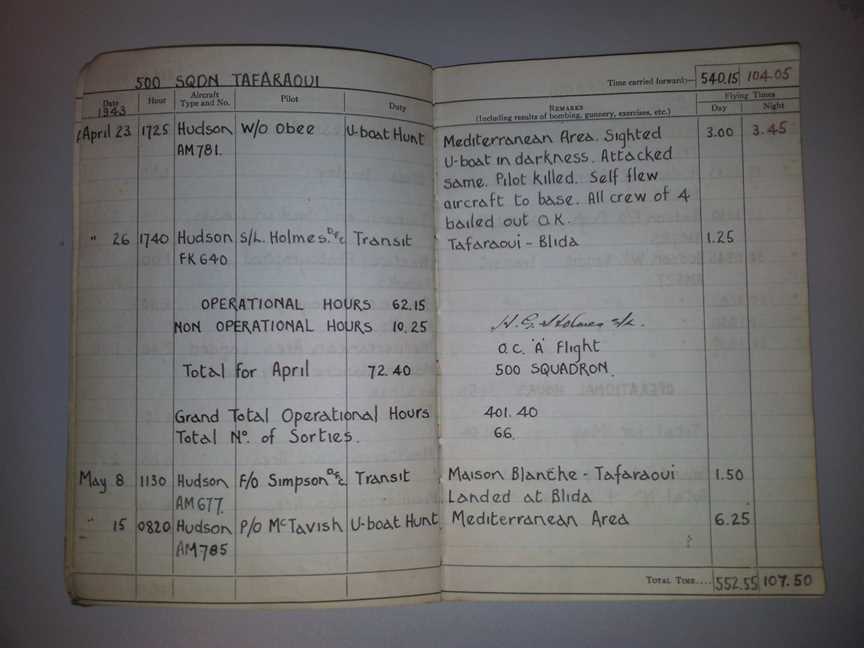 500 SQDN TAFARAOUI
Time carried forward:— 540.15 104.05
Date Hour Aircraft Type and No. Pilot Duty REMARKS (Including results of bombing, gunnery, exercises, etc.) Flying Times Day Night
1943
April 23 1725 Hudson W/O Obee U-boat Hunt Mediterranean Area. Sighted 3.00 3.45
AM781. U-boat in darkness. Attacked
same. Pilot killed. Self flew
aircraft to base. All crew of 4
bailed out O.K.
" 26 1740 Hudson S/L. Holmes. DFC Transit Tafaraoui - Blida 1.25
FK640
OPERATIONAL HOURS 62.15
NON OPERATIONAL HOURS 10.25 H.G. Holmes S/L.
O.C. 'A' Flight
Total for April 72.40 500 SQUADRON.
Grand Total Operational Hours 401.40
Total No. of Sorties. 66.
May 8 1130 Hudson F/O Simpson DFC Transit Maison Blanche - Tafaraoui 1.50
AM677. Landed at Blida
" 15 0820 Hudson P/O McTavish U-boat Hunt Mediterranean Area 6.25
AM785
TOTAL TIME.... 552.55 107.50